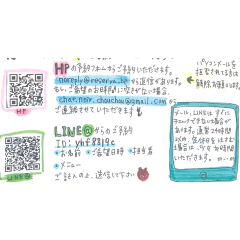 HPの予約フォームからご予約いただけます。
noreply@reserva.be から返信があります。
もし、ご希望のお時間に空きがない場合、
chat.noir.chouchou@gmail.com から
ご連絡させていただきます
HP
パソコンメールを
拒否されてる方は
解除お願いします
LINE@からのご予約
ID: yhf8819c
・お名前 ・ご希望日時 ・担当者
・メニュー
ご記入の上、送信して下さい
LINE@
メール、LINEはすぐに
チェックできない場合が
あります。通常24時間
以内、
場合は、
いただきます。